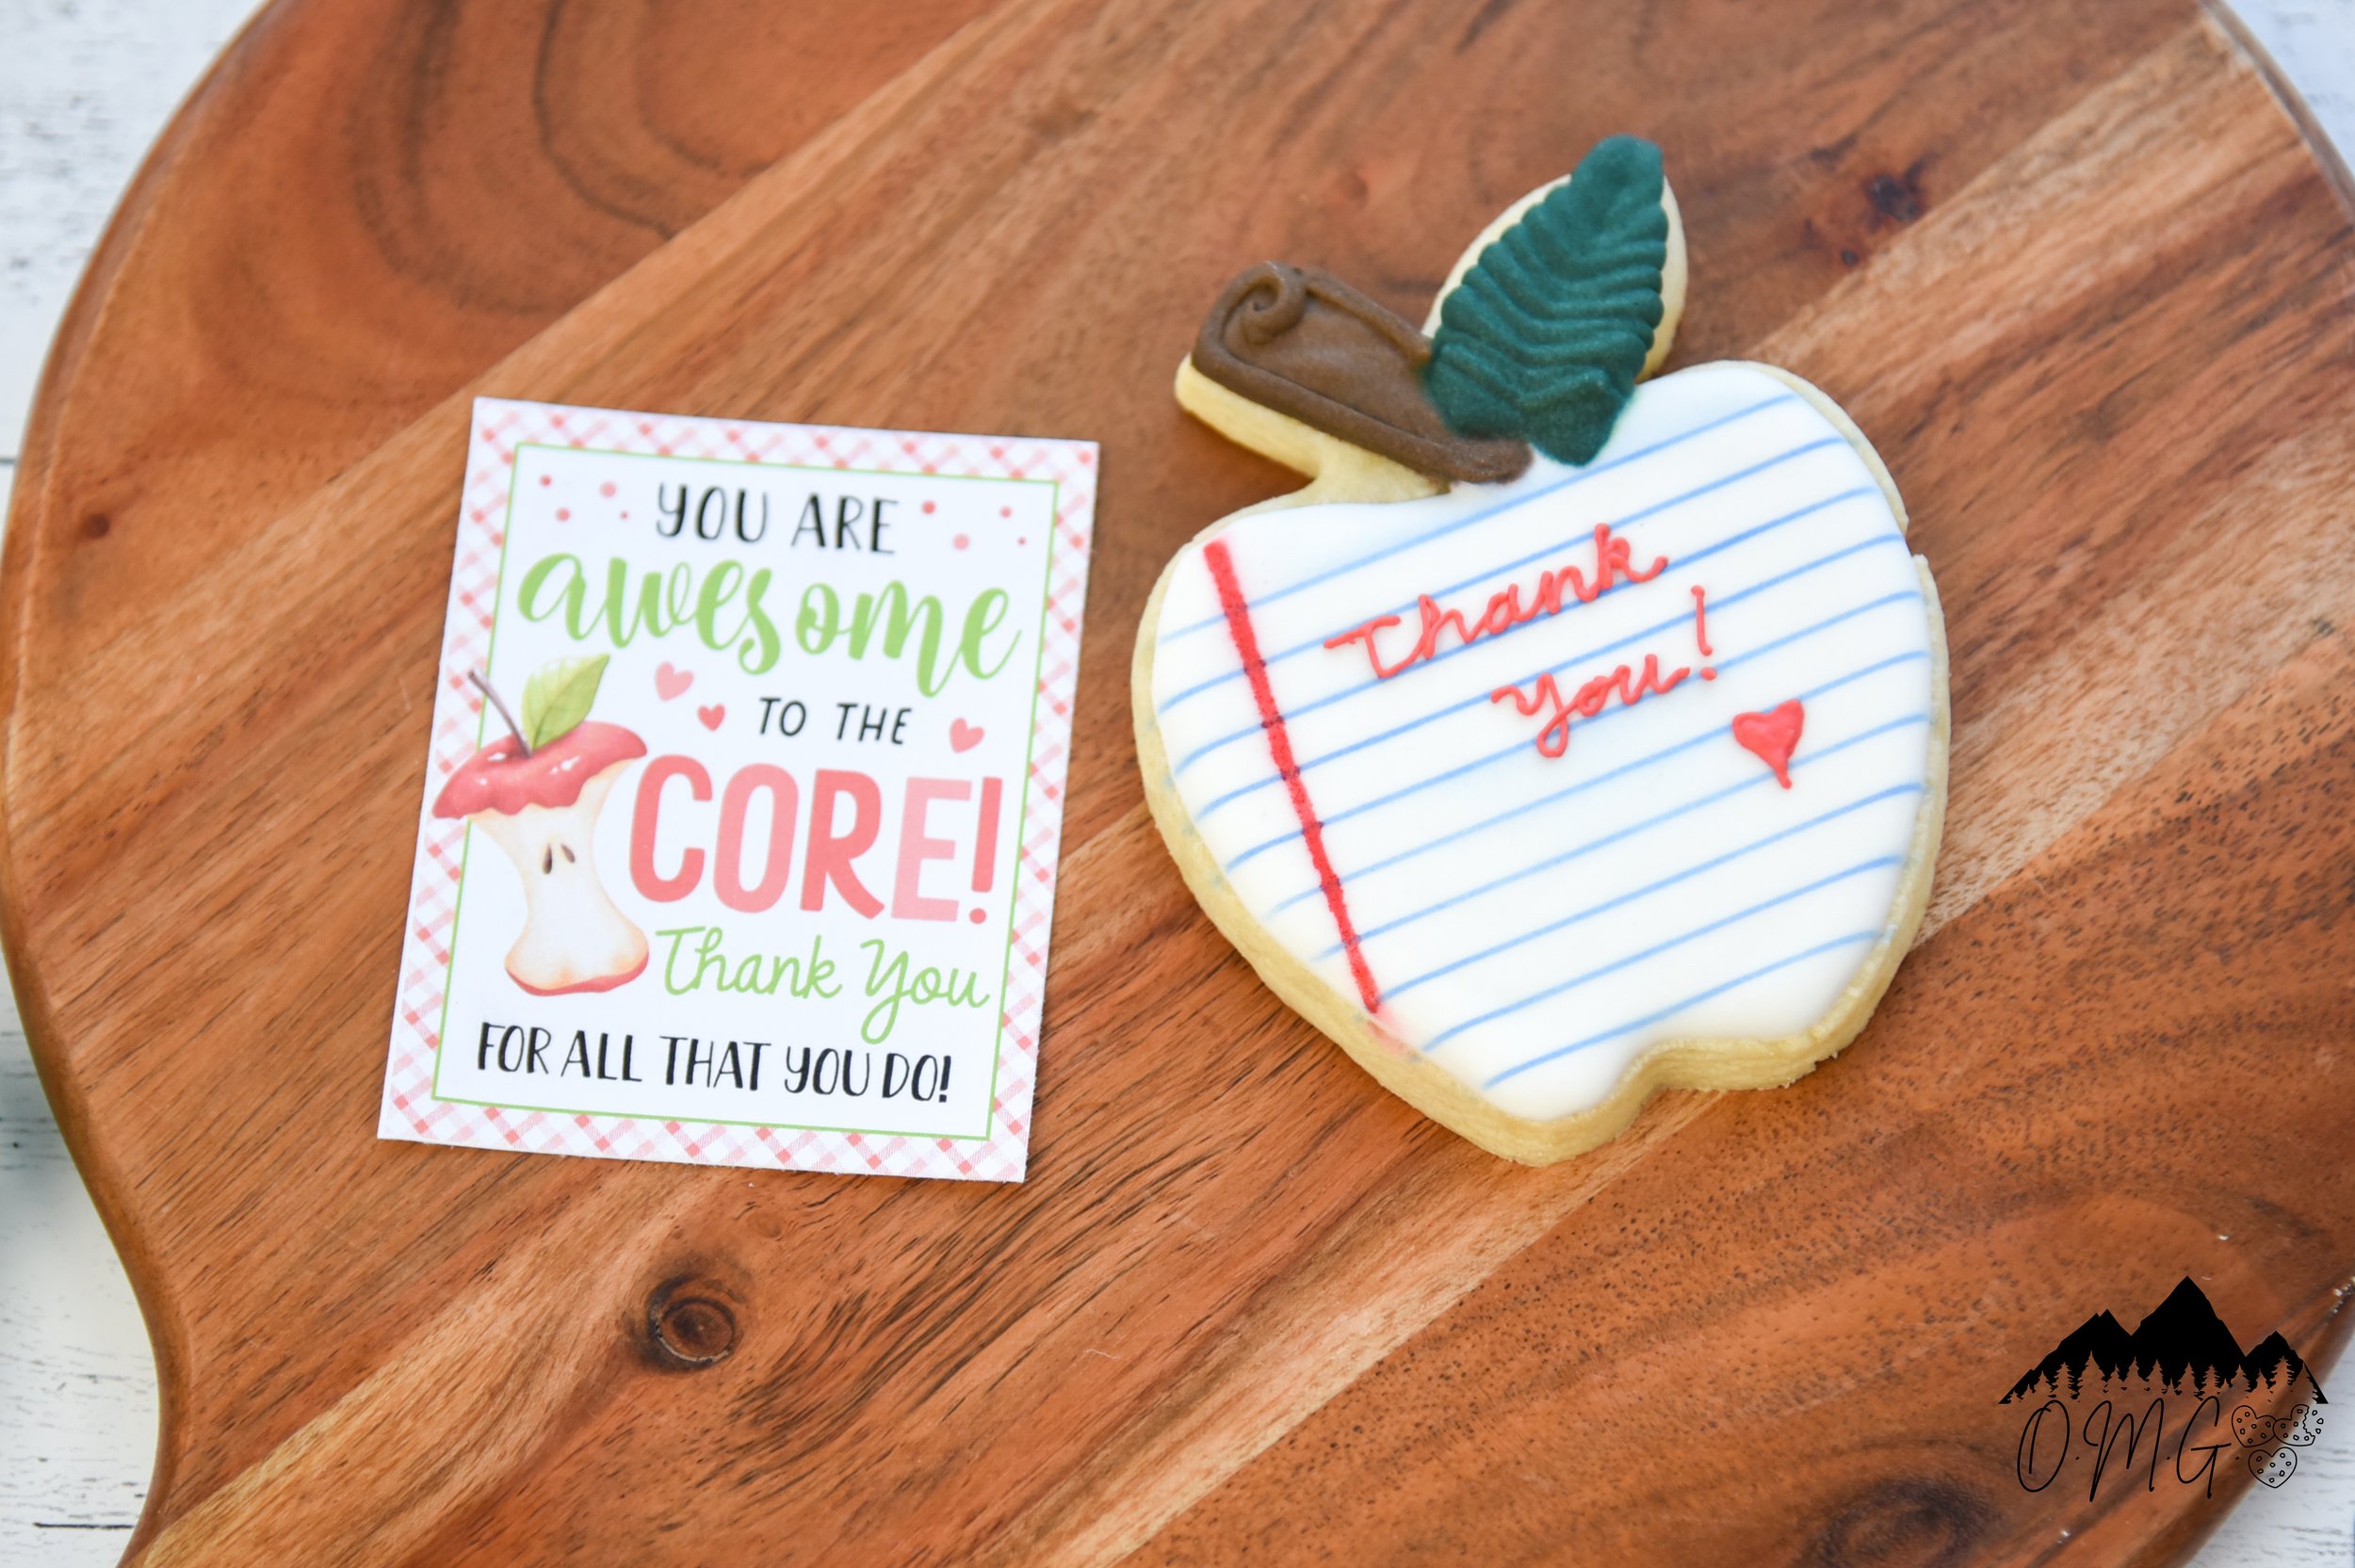 YOU ARE
awesome
TO THE
CORE!
Thank You
FOR ALL THAT YOU DO!
Thank
you!
O.M.G.